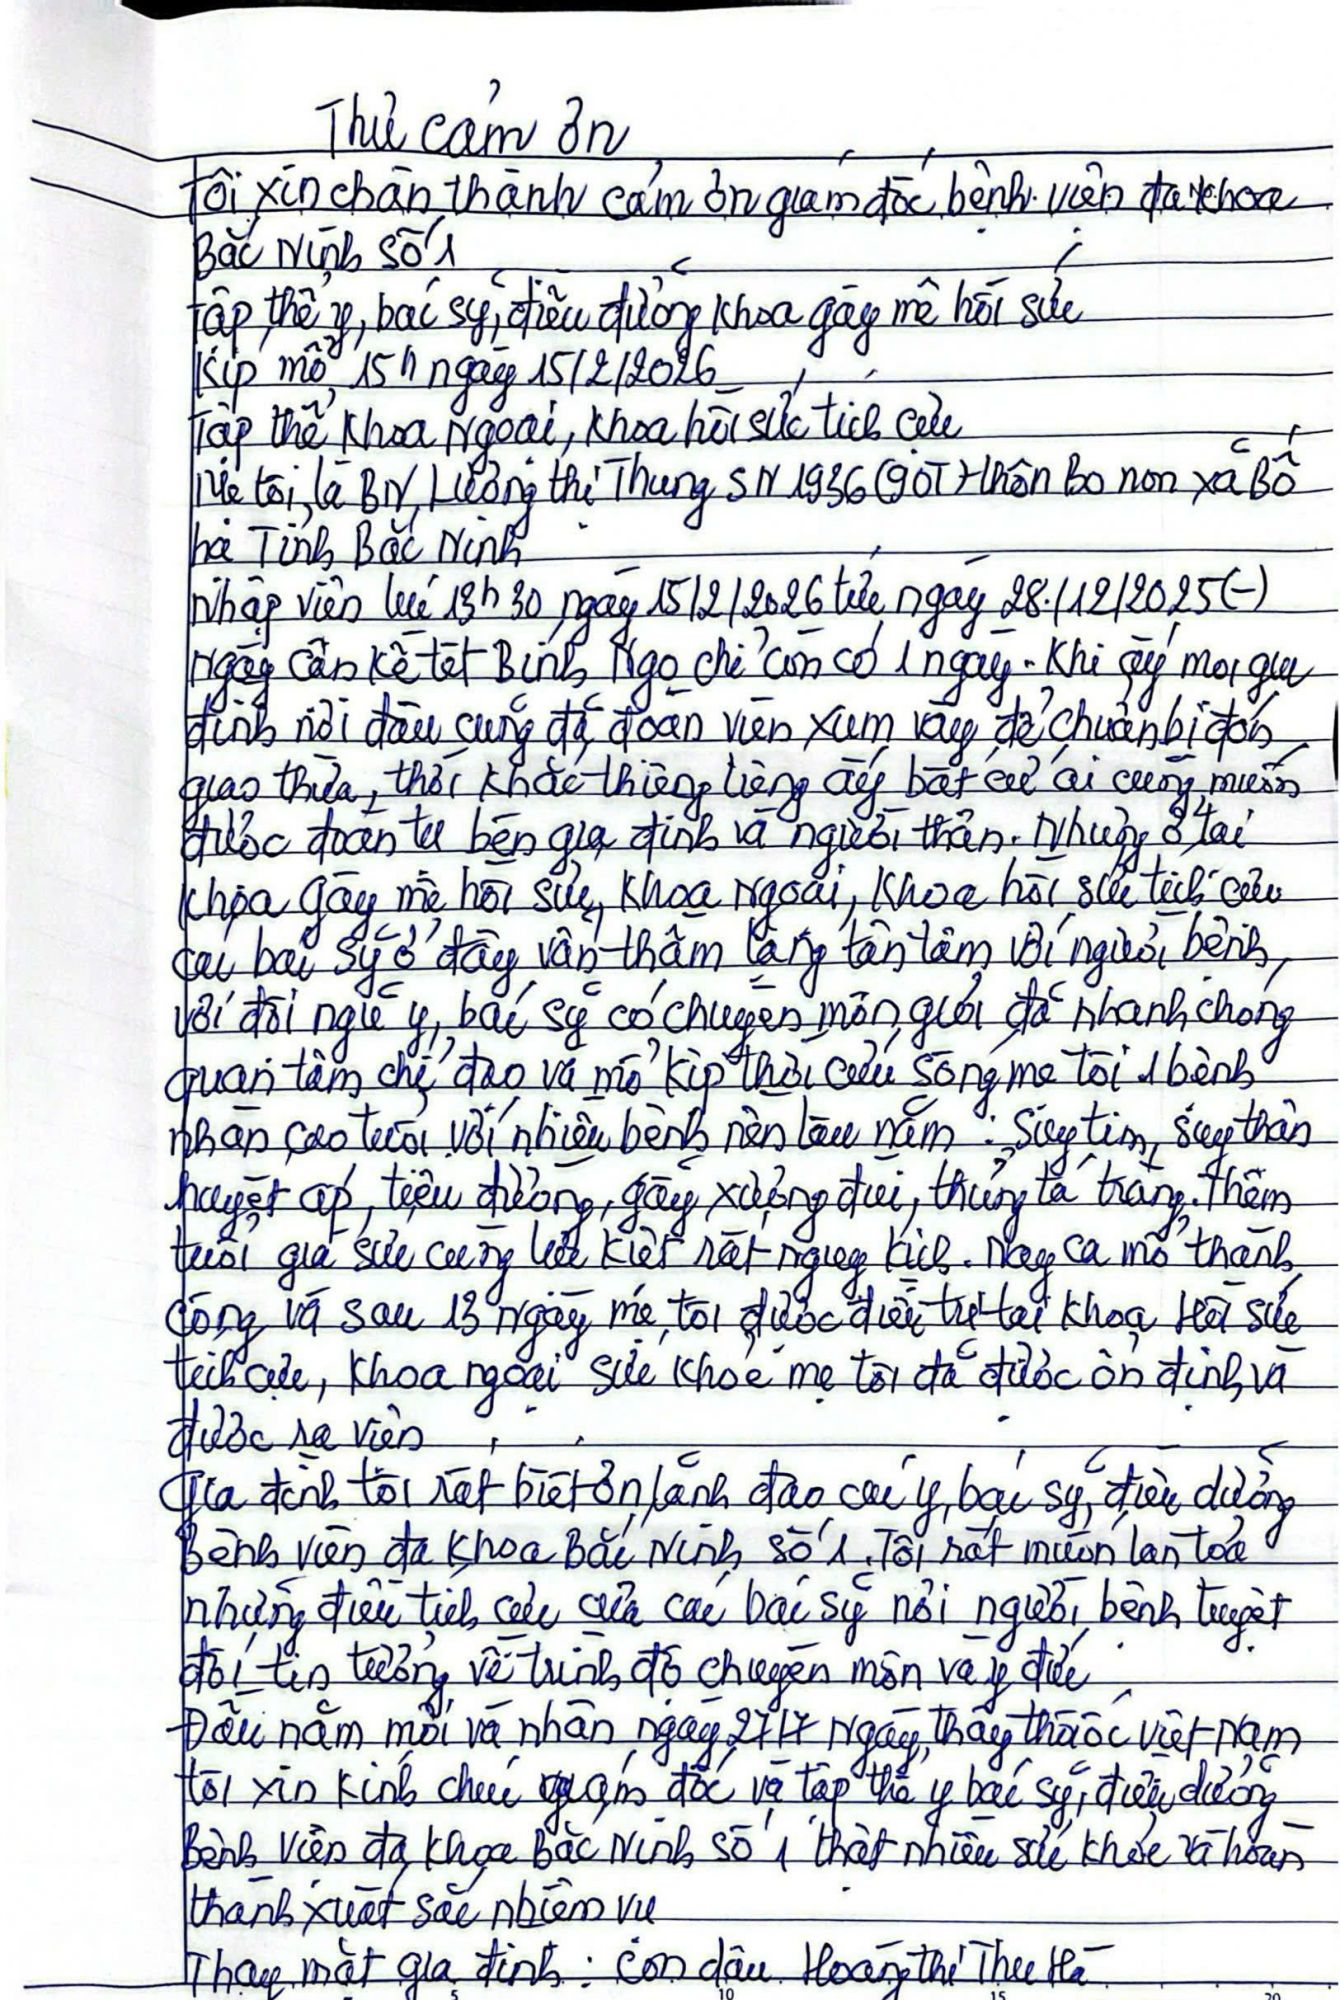 Thư cảm ơn
Tôi xin chân thành cảm ơn giám đốc bệnh viện đa khoa
Bắc Ninh số 1
Tập thể y, bác sỹ, điều dưỡng khoa gây mê hồi sức
Kíp mổ 15h ngày 15/2/2026
Tập thể khoa Ngoại, khoa hồi sức tích cực
Mẹ tôi là BN, Lương thị Thung SN 1936 (90T) thôn Bo non xã Bố
hạ Tỉnh Bắc Ninh
Nhập viện lúc 13h30, ngày 15/2/2026 tức ngày 28/12/2025 (-)
Ngày cận kề tết Bính Ngọ chỉ còn có 1 ngày. Khi ấy mọi gia
đình nơi đâu cũng đã đoàn viên xum vầy để chuẩn bị đón
giao thừa, thời khắc thiêng liêng ấy bất cứ ai cũng muốn
được đoàn tụ bên gia đình và người thân. Nhưng ở tại
khoa gây mê hồi sức, khoa Ngoại, khoa hồi sức tích cực
các bác sỹ ở đây vẫn thầm lặng tận tâm với người bệnh,
với đội ngũ y, bác sỹ có chuyên môn giỏi đã nhanh chóng
quan tâm chỉ đạo và mổ kịp thời cứu sống mẹ tôi 1 bệnh
nhân cao tuổi với nhiều bệnh nền lâu năm: Suy tim, suy thận
huyết áp, tiểu đường, gãy xương đùi, thủng tá tràng. Thêm
tuổi già sức cùng lực kiệt rất nguy kịch. Nay ca mổ thành
công và sau 13 ngày mẹ tôi được điều trị tại khoa Hồi sức
tích cực, khoa ngoại sức khoẻ mẹ tôi đã được ổn định và
được ra viện
Gia đình tôi rất biết ơn lãnh đạo các y, bác sỹ, điều dưỡng
Bệnh viện đa khoa Bắc Ninh số 1. Tôi rất muốn lan toả
những điều tích cực của các bác sỹ nơi người bệnh tuyệt
đối tin tưởng về trình độ chuyên môn và y đức
Đầu năm mới và nhân ngày 27/7 Ngày thầy thuốc Việt Nam
tôi xin kính chúc giám đốc và tập thể y bác sỹ, điều dưỡng
Bệnh viện đa khoa Bắc Ninh số 1 thật nhiều sức khỏe và hoàn
thành xuất sắc nhiệm vụ
Thay mặt gia đình: Con dâu Hoàng thị Thu Hà
5 10 15 20